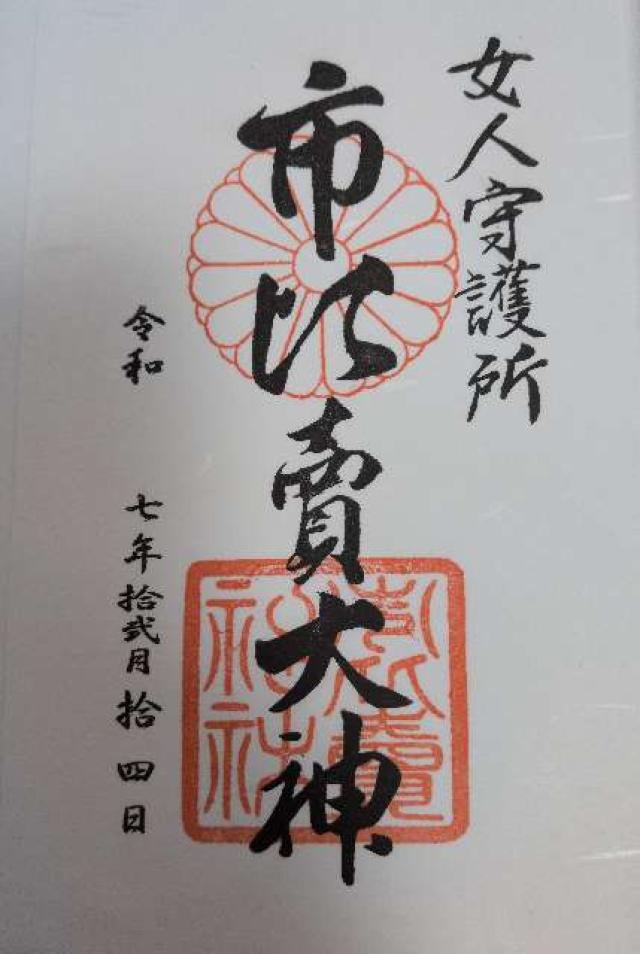 女人守護所
市比賣大神
令和 七年拾弐月拾四日